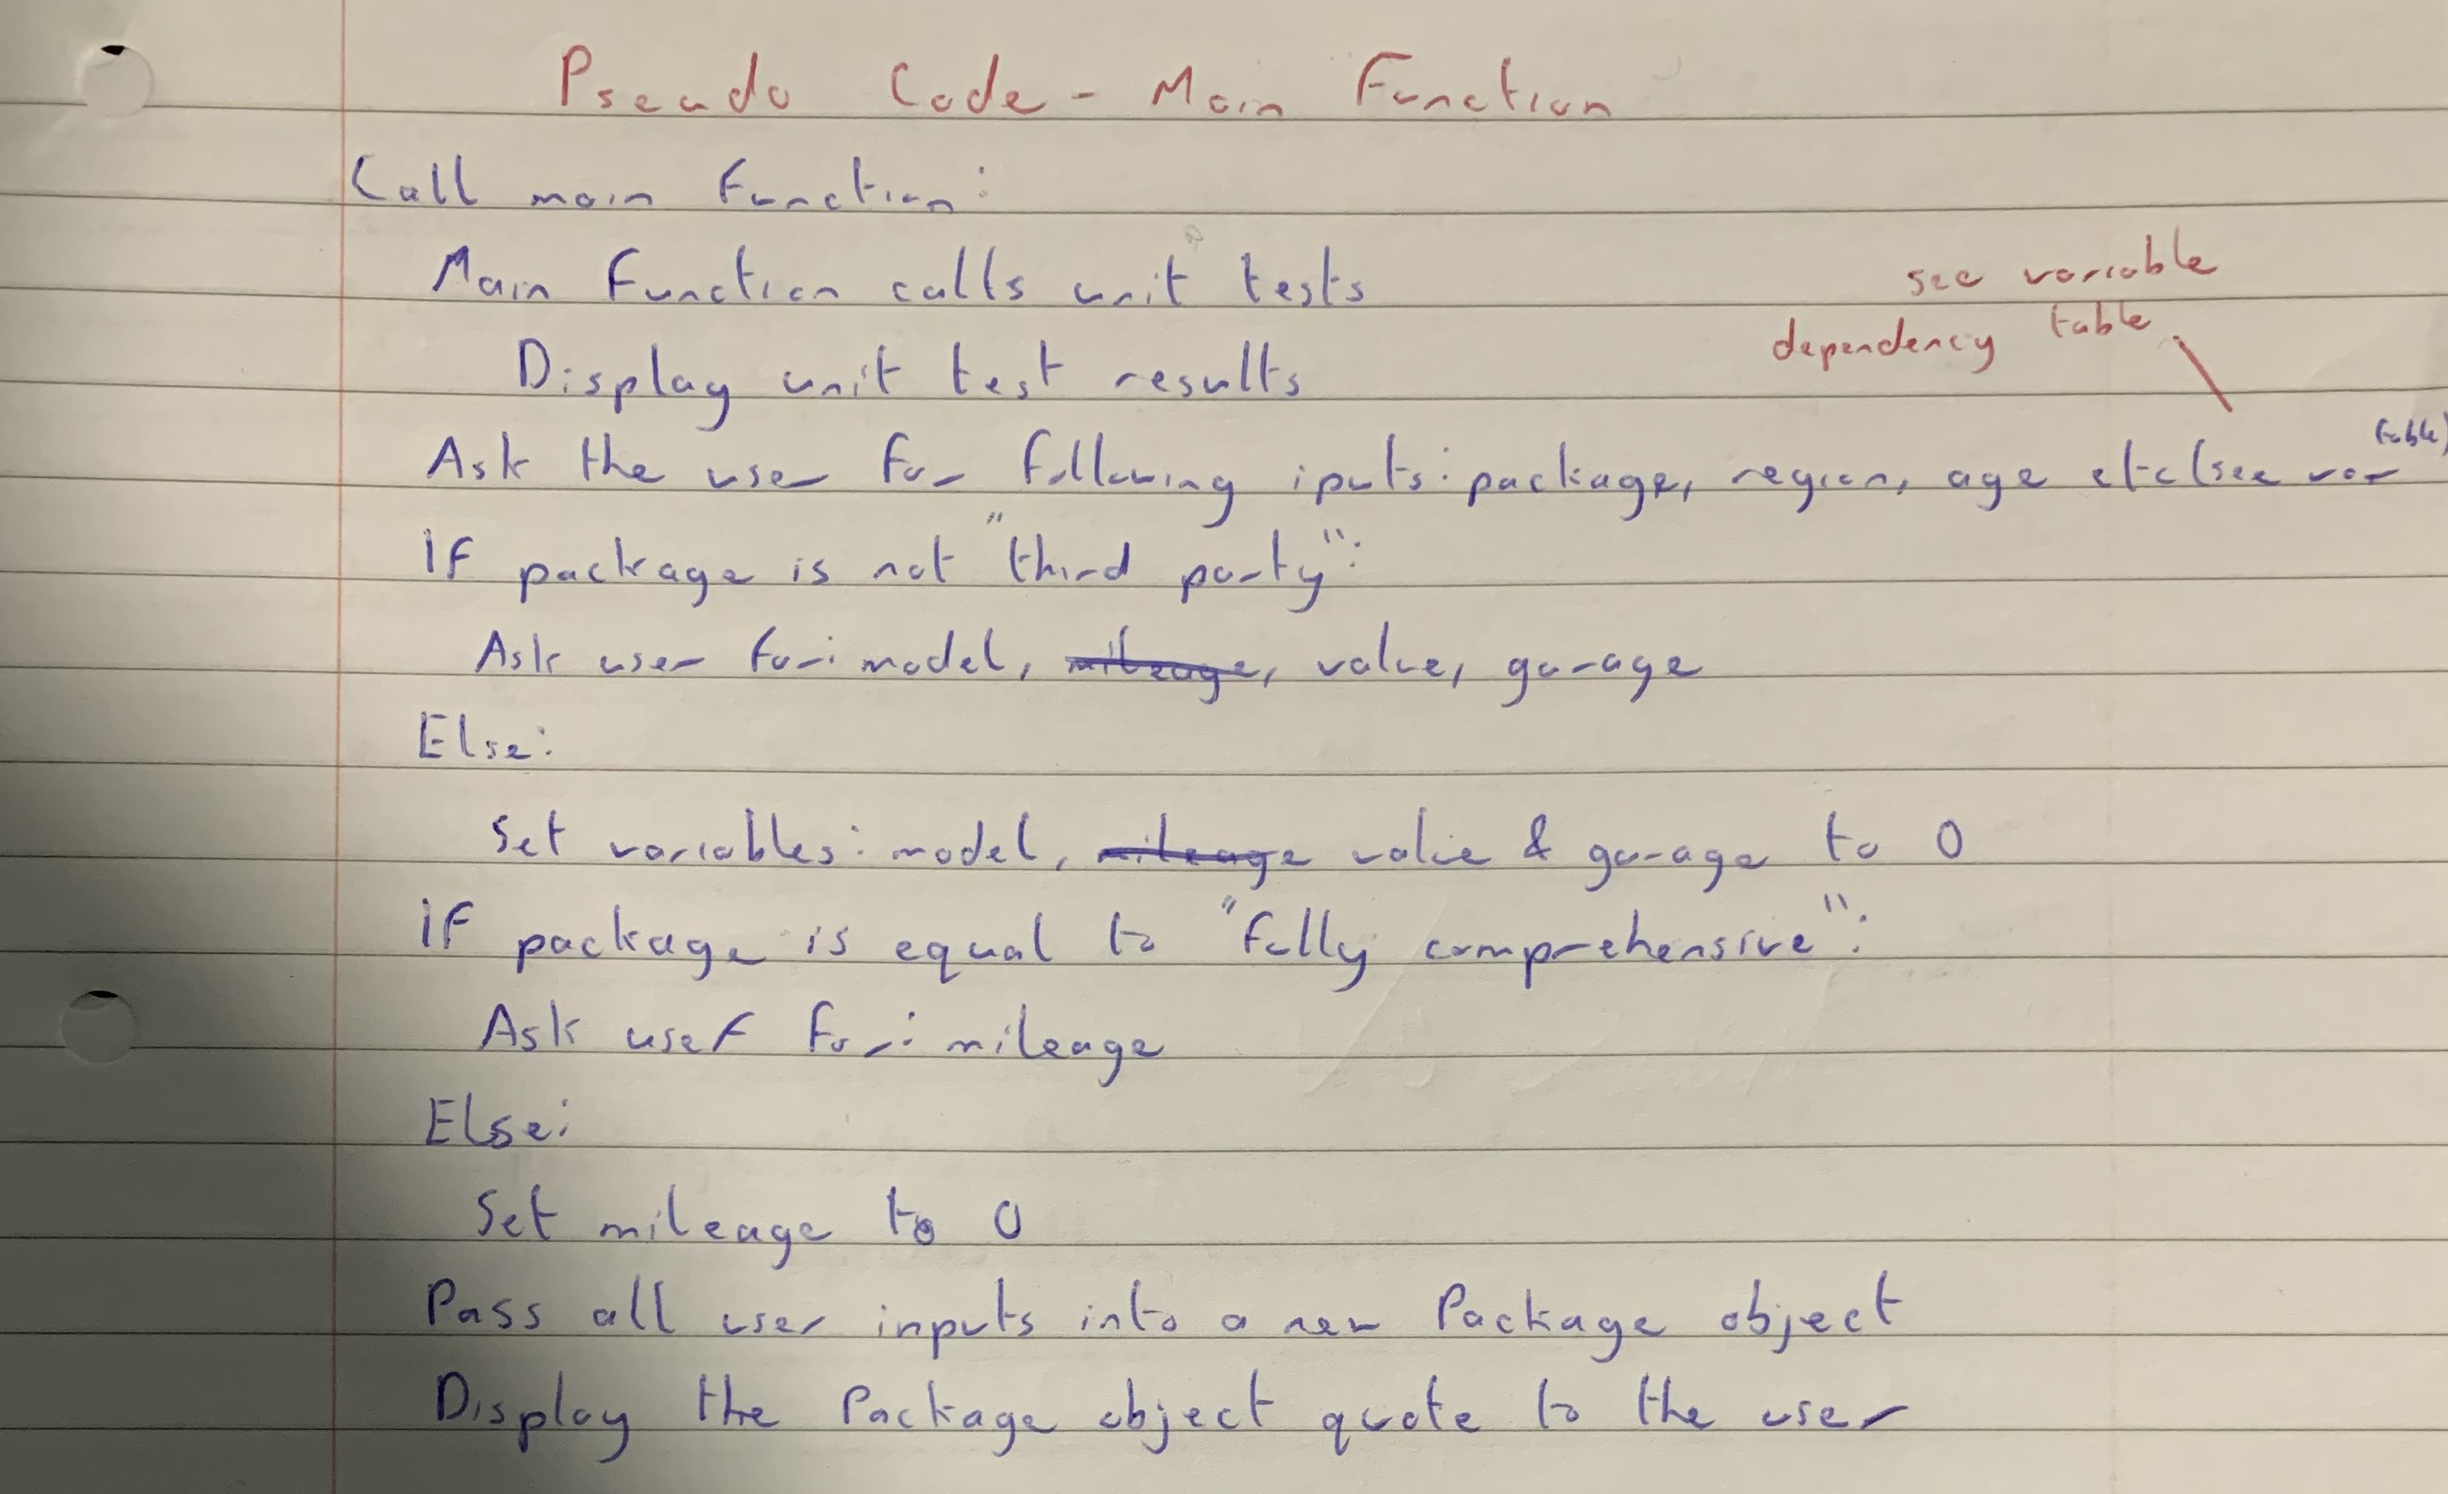 Pseudo Code - Main Function
Call main function:
Main Function calls unit tests
see variable
dependency table
Display unit test results
Ask the user for following iputs: package, region, age etc (see var table)
If package is not "third party":
Ask user for: model, mileage, value, garage
Else:
Set variables: model, mileage value & garage to 0
If package is equal to "fully comprehensive":
Ask user for: mileage
Else:
Set mileage to 0
Pass all user inputs into a new Package object
Display the Package object quote to the user